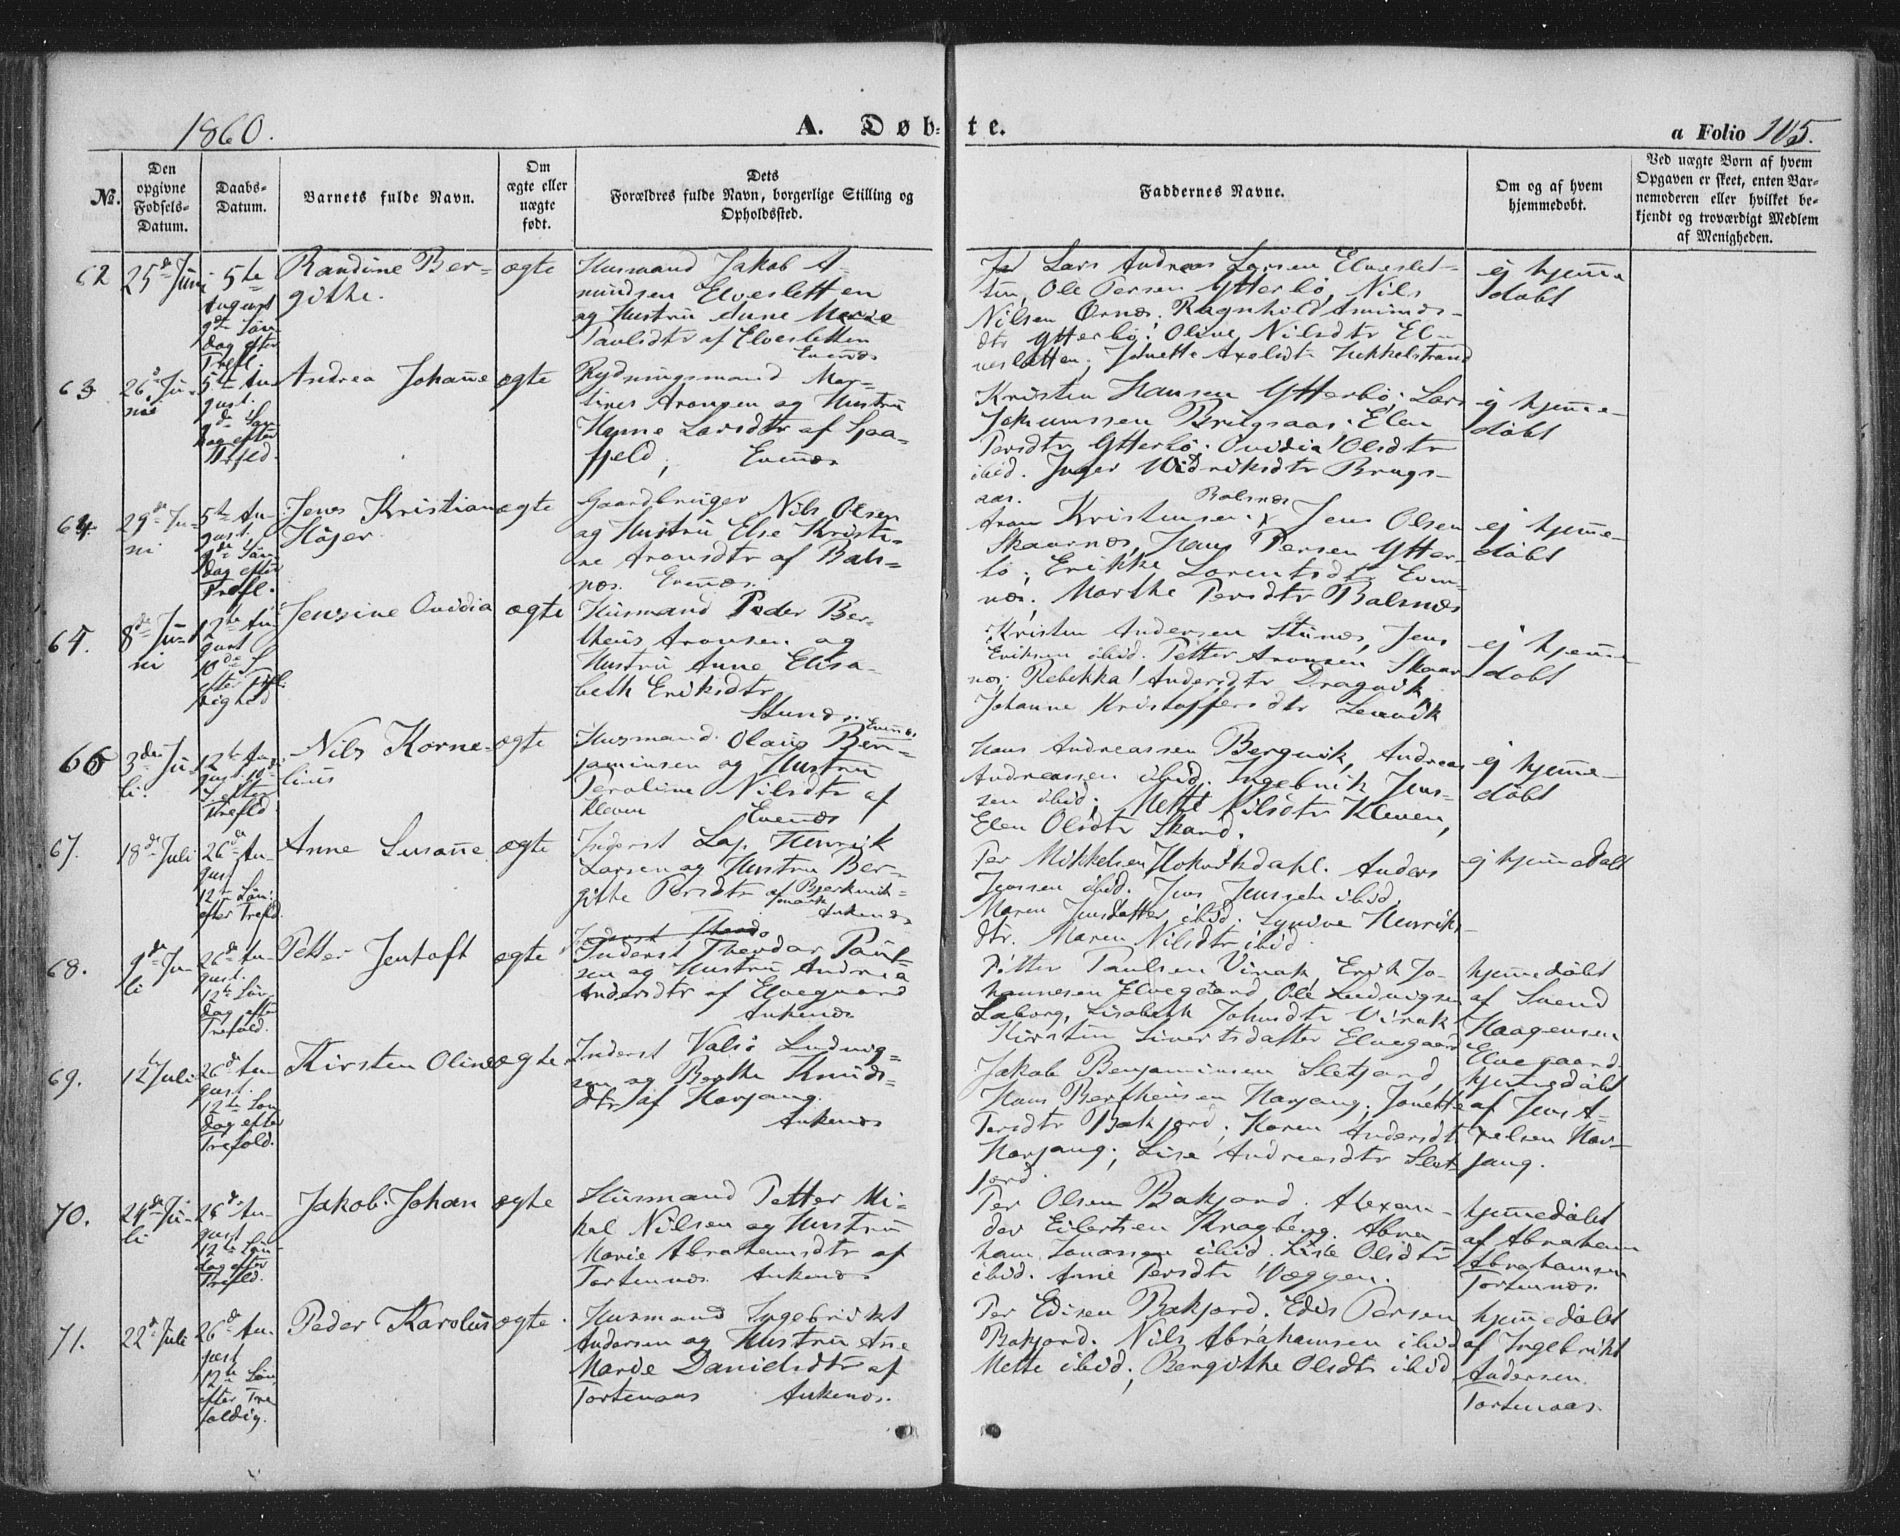 1860.
A. Døb-
te.
a Folio 105.
№.
Den
opgivne
Fødsels-
Datum.
Daabs-
Datum.
Barnets fulde Navn.
Om
ægte eller
uægte
født.
Dets
Forældres fulde Navn, borgerlige Stilling og
Opholdssted.
Faddernes Navne.
Om og af hvem
hjemmedøbt.
Ved uægte Børn af hvem
Opgaven er skeet, enten Bar-
nemoderen eller hvilket be-
kjendt og troværdigt Medlem
af Menigheden.
62
25de Juni
5te
August
9de Søn-
dag efter
Trefl.
Randine Ber-
githe.
ægte
Husmand Jakob A-
mundsen Elvesletten
og Hustru Anne Marie
Paulsdtr af Elvesletten
Evenæs
Lars Andreas Larsen Elveslet-
ten, Ole Persen Ytterbö, Nils
Nilsen Örnæs, Ragnhild Amunds-
dtr Ytterbö; Oline Nilsdtr El-
vesletten; Janette Axelsdtr Hekkelstrand
ej hjemme
döbt
63
26de Ju-
nii
5te Au-
gust.
9de Søn-
dag efter
Trefld.
Andrea Johanne
ægte
Rydningsmand Mor-
tines Aronsen og Hustru
Hanne Larsdtr af Sjaa-
fjeld, Evenæs
Kristen Hansen Ytterbö; Lars
Johannssen Brügsaas. Elen
Persdtr Ytterbö. Ovidia Olsdtr
ibid. Inger Hidriksdtr Brugs-
aas.
ej hjemme-
döbt
64
29de Ju-
ni
5te Au-
gust.
9de Søn-
dag efter
Trefl.
Jens Kristian
Höjer
ægte
Gaardbruger Nils Olsen
og Hustru Else Kristi-
ne Aronsdtr af Bals-
næs. Evenæs.
Balsnæs
Aron Kristensen. Jens Olsen
Skaarnæs, Hans Persen Ytter-
bö; Erikke Lorentsdtr Even-
næs; Marthe Persdtr Balsnæs
ej hjemme-
döbt
65.
8de Ju-
ni
12te Au-
gust
10de S.
efter Trefl-
dighed
Jensine Ovidia
ægte
Husmand Peder Ber-
theus Aronsen og
Hustru Anne Elisa-
beth Eriksdtr
Stunæs. Evenæs
Kristen Andersen Stunæs, Jens
Eriksen ibid. Petter Aronsen Skaar-
næs; Rebekka Andersdtr Dragvik,
Johanne Kristoffersdtr Lenvik
ej hjemme
döbt
66
3die Ju-
li.
12te Au-
gust. 10-
S. efter
Trefld.
Nils Korne-
lius
ægte
Husmand Olaus Ben-
jaminsen og Hustru
Peroline Nilsdtr af
Kleven Evenæs
Hans Andreassen Bergvik, Andreas
Andreassen ibid. Ingebrik Jens-
sen ibid; Mette Nilsdtr Kleven,
Elen Olsdtr Skard.
ej hjemme-
döbt
67.
18de Juli
26de Au-
gust
12te Søn.
efter Trefld.
Anne Susanne
ægte
Inderst Lap. Henrik
Larsen og Hustru Ber-
githe Persdtr af Bjerkvik-
mark Ankenæs
Per Mikkelsen Hokvikdahl. Anders
Jenssen ibid. Jens Jenssen ibid.
Maren Jensdatter ibid. Synive Henriks-
dtr. Maren Nilsdtr ibid.
ej hjemmedöbt
68.
9de Ju-
li
26de Au-
gust.
12te Søn-
dag efter
Trefold.
Petter Jentoft
ægte
Inderst Theodor Paul-
sen og Hustru Andrea
Andersdtr af Elvegaard
Ankenæs
Petter Paulsen Virak, Erik Jo-
hannesen Elvegaard Ole Ludvigsen
Saborg, Lisabeth Johnsdtr Virak
Kirsten Sivertsdatter Elvegaard
hjemmedöbt
af Svend
Haagensen
Elvegaard.
69.
12 Juli
26de Au-
gust.
12te Søn-
dag efter
Trefold.
Kirsten Oline
ægte
Inderst Valsö Ludvig-
sen og Berthe Knuds-
dtr af Harjang.
Ankenæs
Jakob Benjaminsen Sletjord,
Hans Bertheusen Harjang; Janette
Persdtr Bakjord; Karen Andersdtr
Harjang; Lise Andreasdtr Slet-
jord.
hjemmedöbt
af Jens A-
xelsen Har-
jang.
70.
24de Ju-
li
26de Au-
gust
12te Søn-
dag efter
Trefld.
Jakob Johan
ægte
Husmand Petter Mi-
kal Nilsen og Hustru
Marie Abrahamsdtr af
Tortennæs Ankenæs
Per Olsen Bakjord; Alexan-
der Eilertsen Kragberg. Abra-
ham Jonassen ibid. Lise Olsdtr
ibid. Anne Persdtr Væggen.
hjemmedöbt
af Abraham
Abrahamsen
Tortennæs.
71.
22de Juli
26de Au-
gust
12te Søn
efter Tre
foldig.
Peder Karolus
ægte.
Husmand Ingebrikt
Andersen og Hustru Ane
Marie Danielsdtr af
Tortenaas Ankenæs.
Per Edisen Bakjord. Edis Persen
Bakjord. Nils Abrahamsen ibid
Mette ibid; Bergithe Olsdtr ibid
hjemmedöbt
af Ingebrikt
Andersen
Tortenaas.